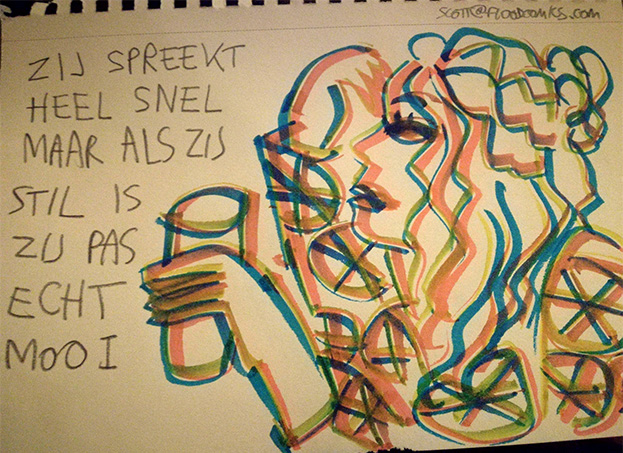 scott@floodcomics.com
ZIJ SPREEKT
HEEL SNEL
MAAR ALS ZIJ
STIL IS
ZIJ PAS
ECHT
MOOI